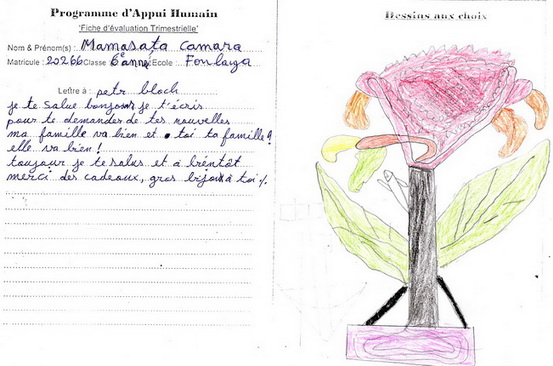 Programme d'Appui Humain
'Fiche d'évaluation Trimestrielle'
Nom & Prénom(s) : Mamasata camara
Matricule : 20266 Classe : 6e année Ecole : Foulaya
Lettre à : petr bloch
je te salue bonjour je t'écris
pour te demander de tes nouvelles
ma famille va bien et toi ta famille?
elle va bien!
toujour je te salus et à bréntôt
merci des cadeaux, gros bijou à toi
Dessins aux choix